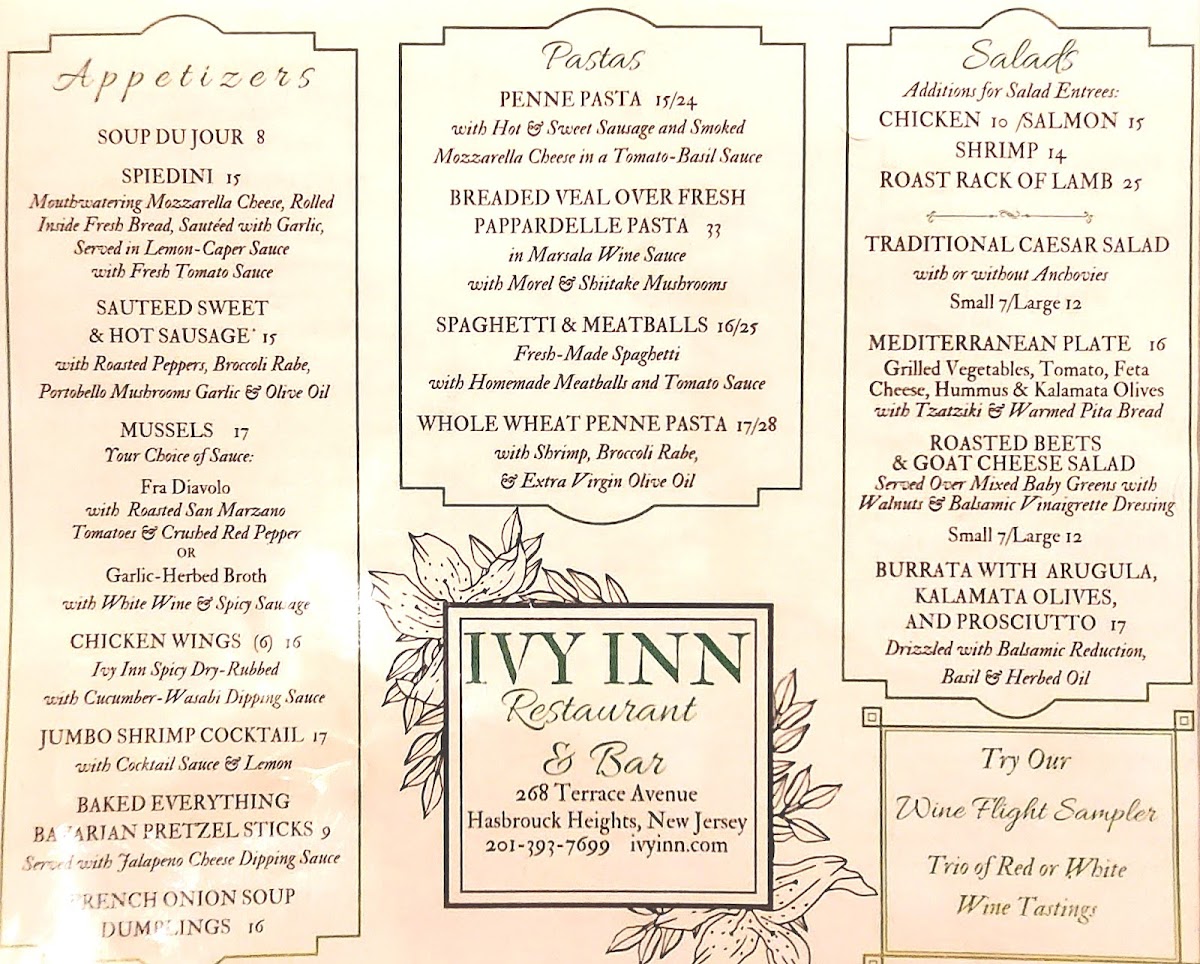 Appetizers
SOUP DU JOUR 8
SPIEDINI 15
Mouthwatering Mozzarella Cheese, Rolled
Inside Fresh Bread, Sautéed with Garlic,
Served in Lemon-Caper Sauce
with Fresh Tomato Sauce
SAUTEED SWEET
& HOT SAUSAGE* 15
with Roasted Peppers, Broccoli Rabe,
Portobello Mushrooms Garlic & Olive Oil
MUSSELS 17
Your Choice of Sauce:
Fra Diavolo
with Roasted San Marzano
Tomatoes & Crushed Red Pepper
OR
Garlic-Herbed Broth
with White Wine & Spicy Sausage
CHICKEN WINGS (6) 16
Ivy Inn Spicy Dry-Rubbed
with Cucumber-Wasabi Dipping Sauce
JUMBO SHRIMP COCKTAIL 17
with Cocktail Sauce & Lemon
BAKED EVERYTHING
BAVARIAN PRETZEL STICKS 9
Served with Jalapeno Cheese Dipping Sauce
FRENCH ONION SOUP
DUMPLINGS 16
Pastas
PENNE PASTA 15/24
with Hot & Sweet Sausage and Smoked
Mozzarella Cheese in a Tomato-Basil Sauce
BREADED VEAL OVER FRESH
PAPPARDELLE PASTA 33
in Marsala Wine Sauce
with Morel & Shiitake Mushrooms
SPAGHETTI & MEATBALLS 16/25
Fresh-Made Spaghetti
with Homemade Meatballs and Tomato Sauce
WHOLE WHEAT PENNE PASTA 17/28
with Shrimp, Broccoli Rabe,
& Extra Virgin Olive Oil
IVY INN
Restaurant
& Bar
268 Terrace Avenue
Hasbrouck Heights, New Jersey
201-393-7699 ivyinn.com
Salads
Additions for Salad Entrees:
CHICKEN 10 /SALMON 15
SHRIMP 14
ROAST RACK OF LAMB 25
TRADITIONAL CAESAR SALAD
with or without Anchovies
Small 7/Large 12
MEDITERRANEAN PLATE 16
Grilled Vegetables, Tomato, Feta
Cheese, Hummus & Kalamata Olives
with Tzatziki & Warmed Pita Bread
ROASTED BEETS
& GOAT CHEESE SALAD
Served Over Mixed Baby Greens with
Walnuts & Balsamic Vinaigrette Dressing
Small 7/Large 12
BURRATA WITH ARUGULA,
KALAMATA OLIVES,
AND PROSCIUTTO 17
Drizzled with Balsamic Reduction,
Basil & Herbed Oil
Try Our
Wine Flight Sampler
Trio of Red or White
Wine Tastings